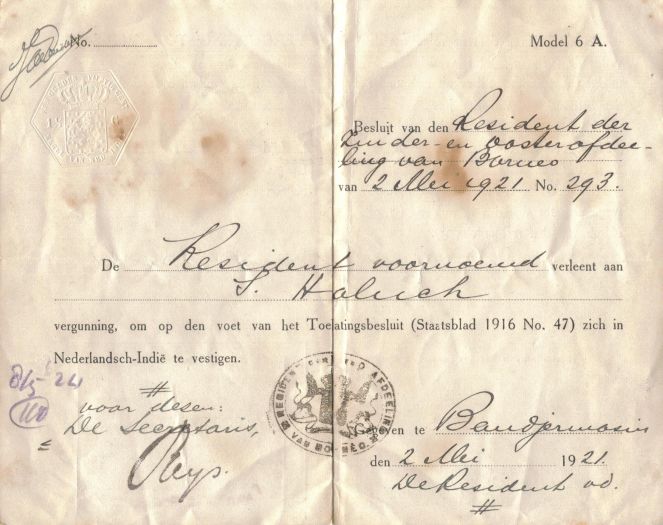 No.
Model 6 A.
Besluit van den Resident der
Zuider- en Oosterafdee-
ling van Borneo
van 2 Mei 1921 No. 293.
De Resident voornoemd verleent aan
S. Haluch
vergunning, om op den voet van het Toelatingsbesluit (Staatsblad 1916 No. 47) zich in
Nederlandsch-Indië te vestigen.
voor desen:
De Secretaris,
Gegeven te Bandjermasin
den 2 Mei 1921.
De Resident vd.
VAN BORNEO
100